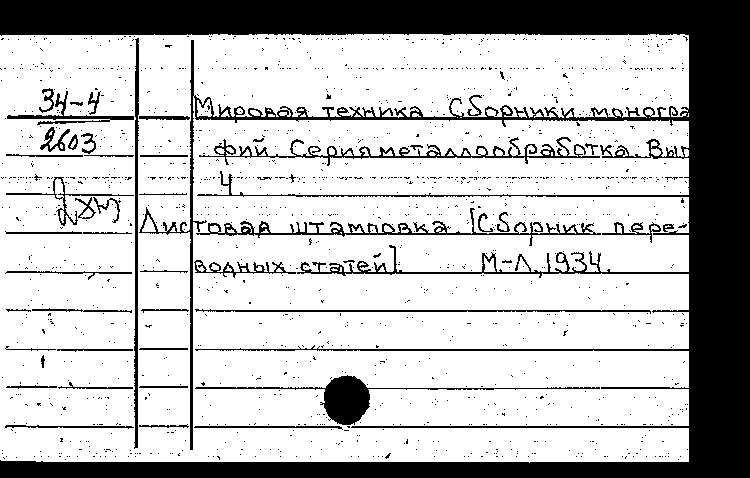 34-4
2603
Мировая техника Сборники моногра
фий. Серия металлообработка. Вып
4.
Листовая штамповка. [Сборник пере-
водных статей]. М.-Л., 1934.